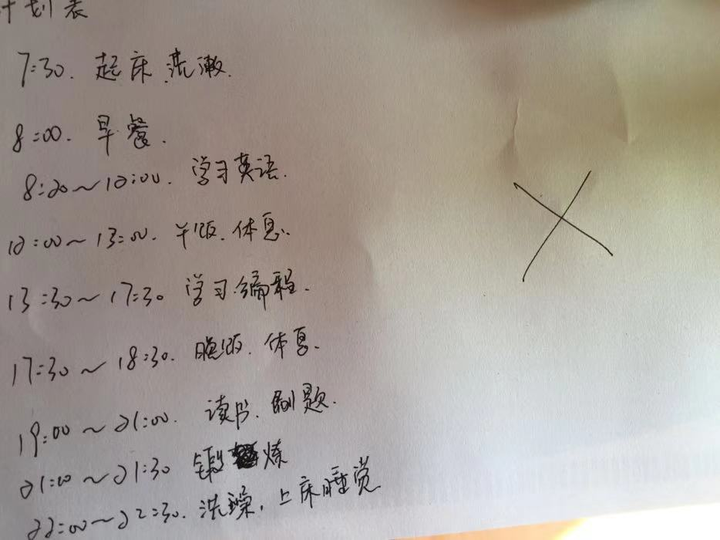 计划表
7:30. 起床 洗漱.
8:00. 早餐.
8:20~12:00. 学习英语.
12:00~13:00. 午饭. 休息.
13:30~17:30 学习编程.
17:30~18:30. 晚饭. 休息.
19:00~21:00. 读书. 刷题.
21:00~21:30 锻炼
22:00~22:30. 洗澡, 上床睡觉